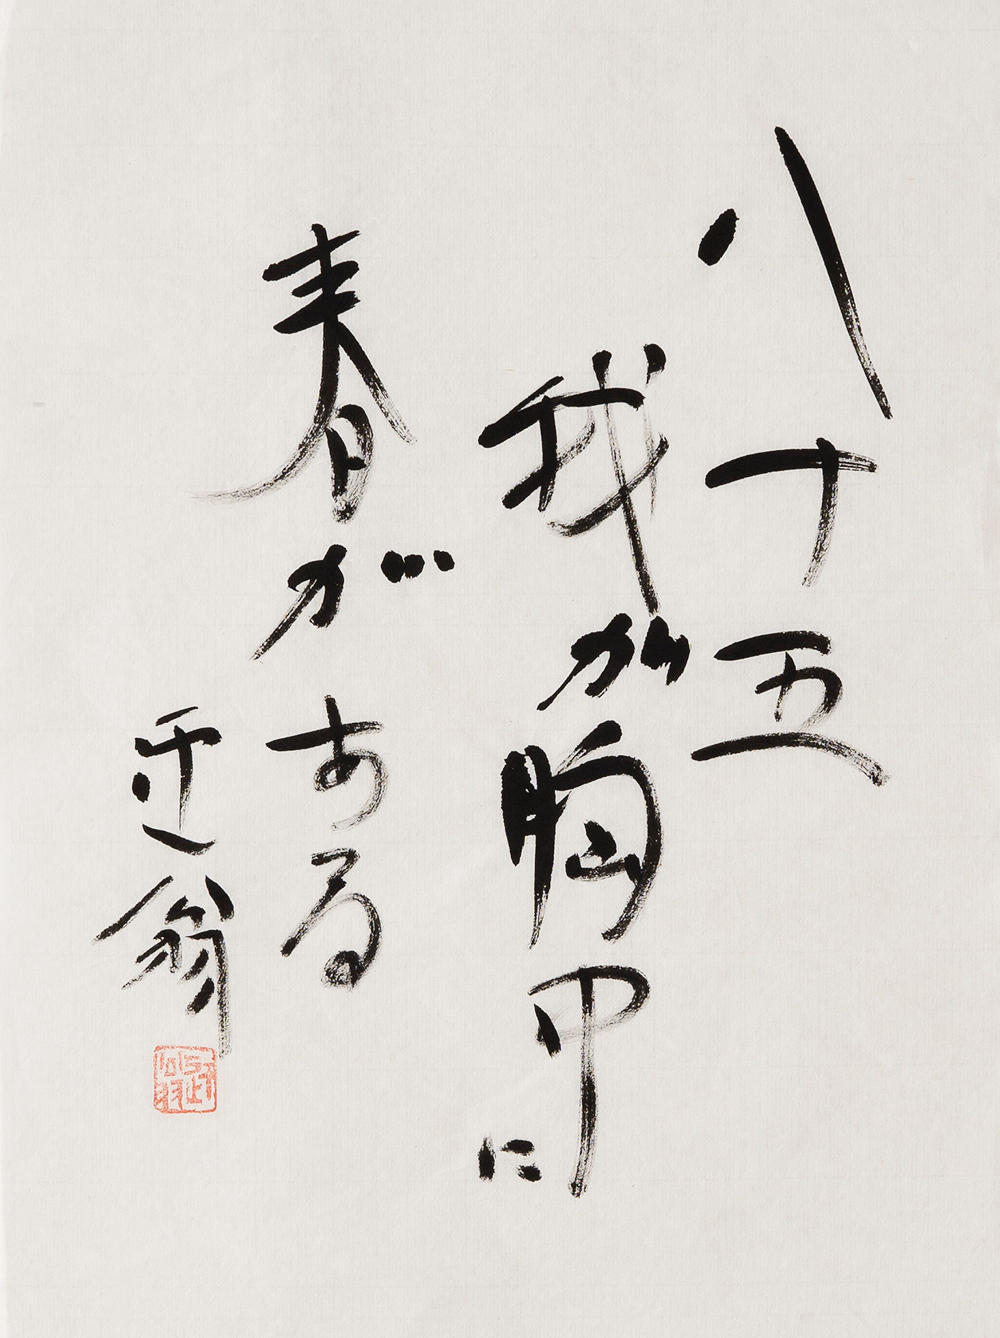 八十五
我が胸中に
春がある
迂翁